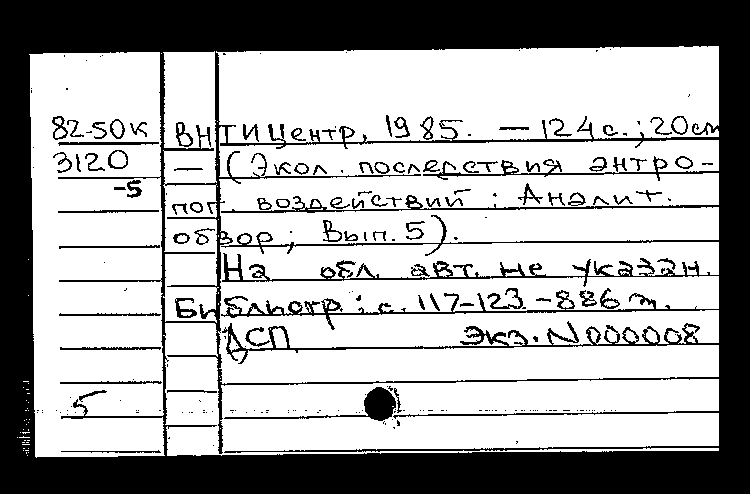 82-50к ВНТИЦентр, 1985. — 124 с.; 20см
3120 — (Экол. последствия энтро-
-5 пог. воздействий: Аналит.
обзор; Вып. 5).
На обл. авт. не указан.
Библиогр: с. 117-123 - 886 т.
ДСП Экз. N000008
5